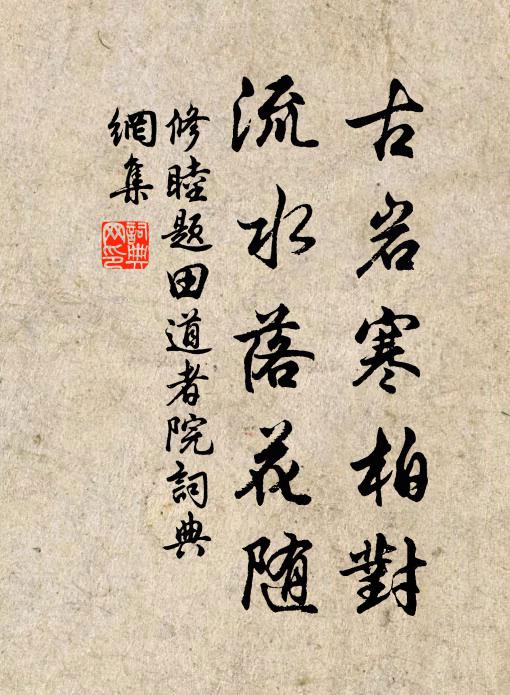 古岩寒柏對
流水落花随
修睦题田道者院詞典
網集
詞典
网印